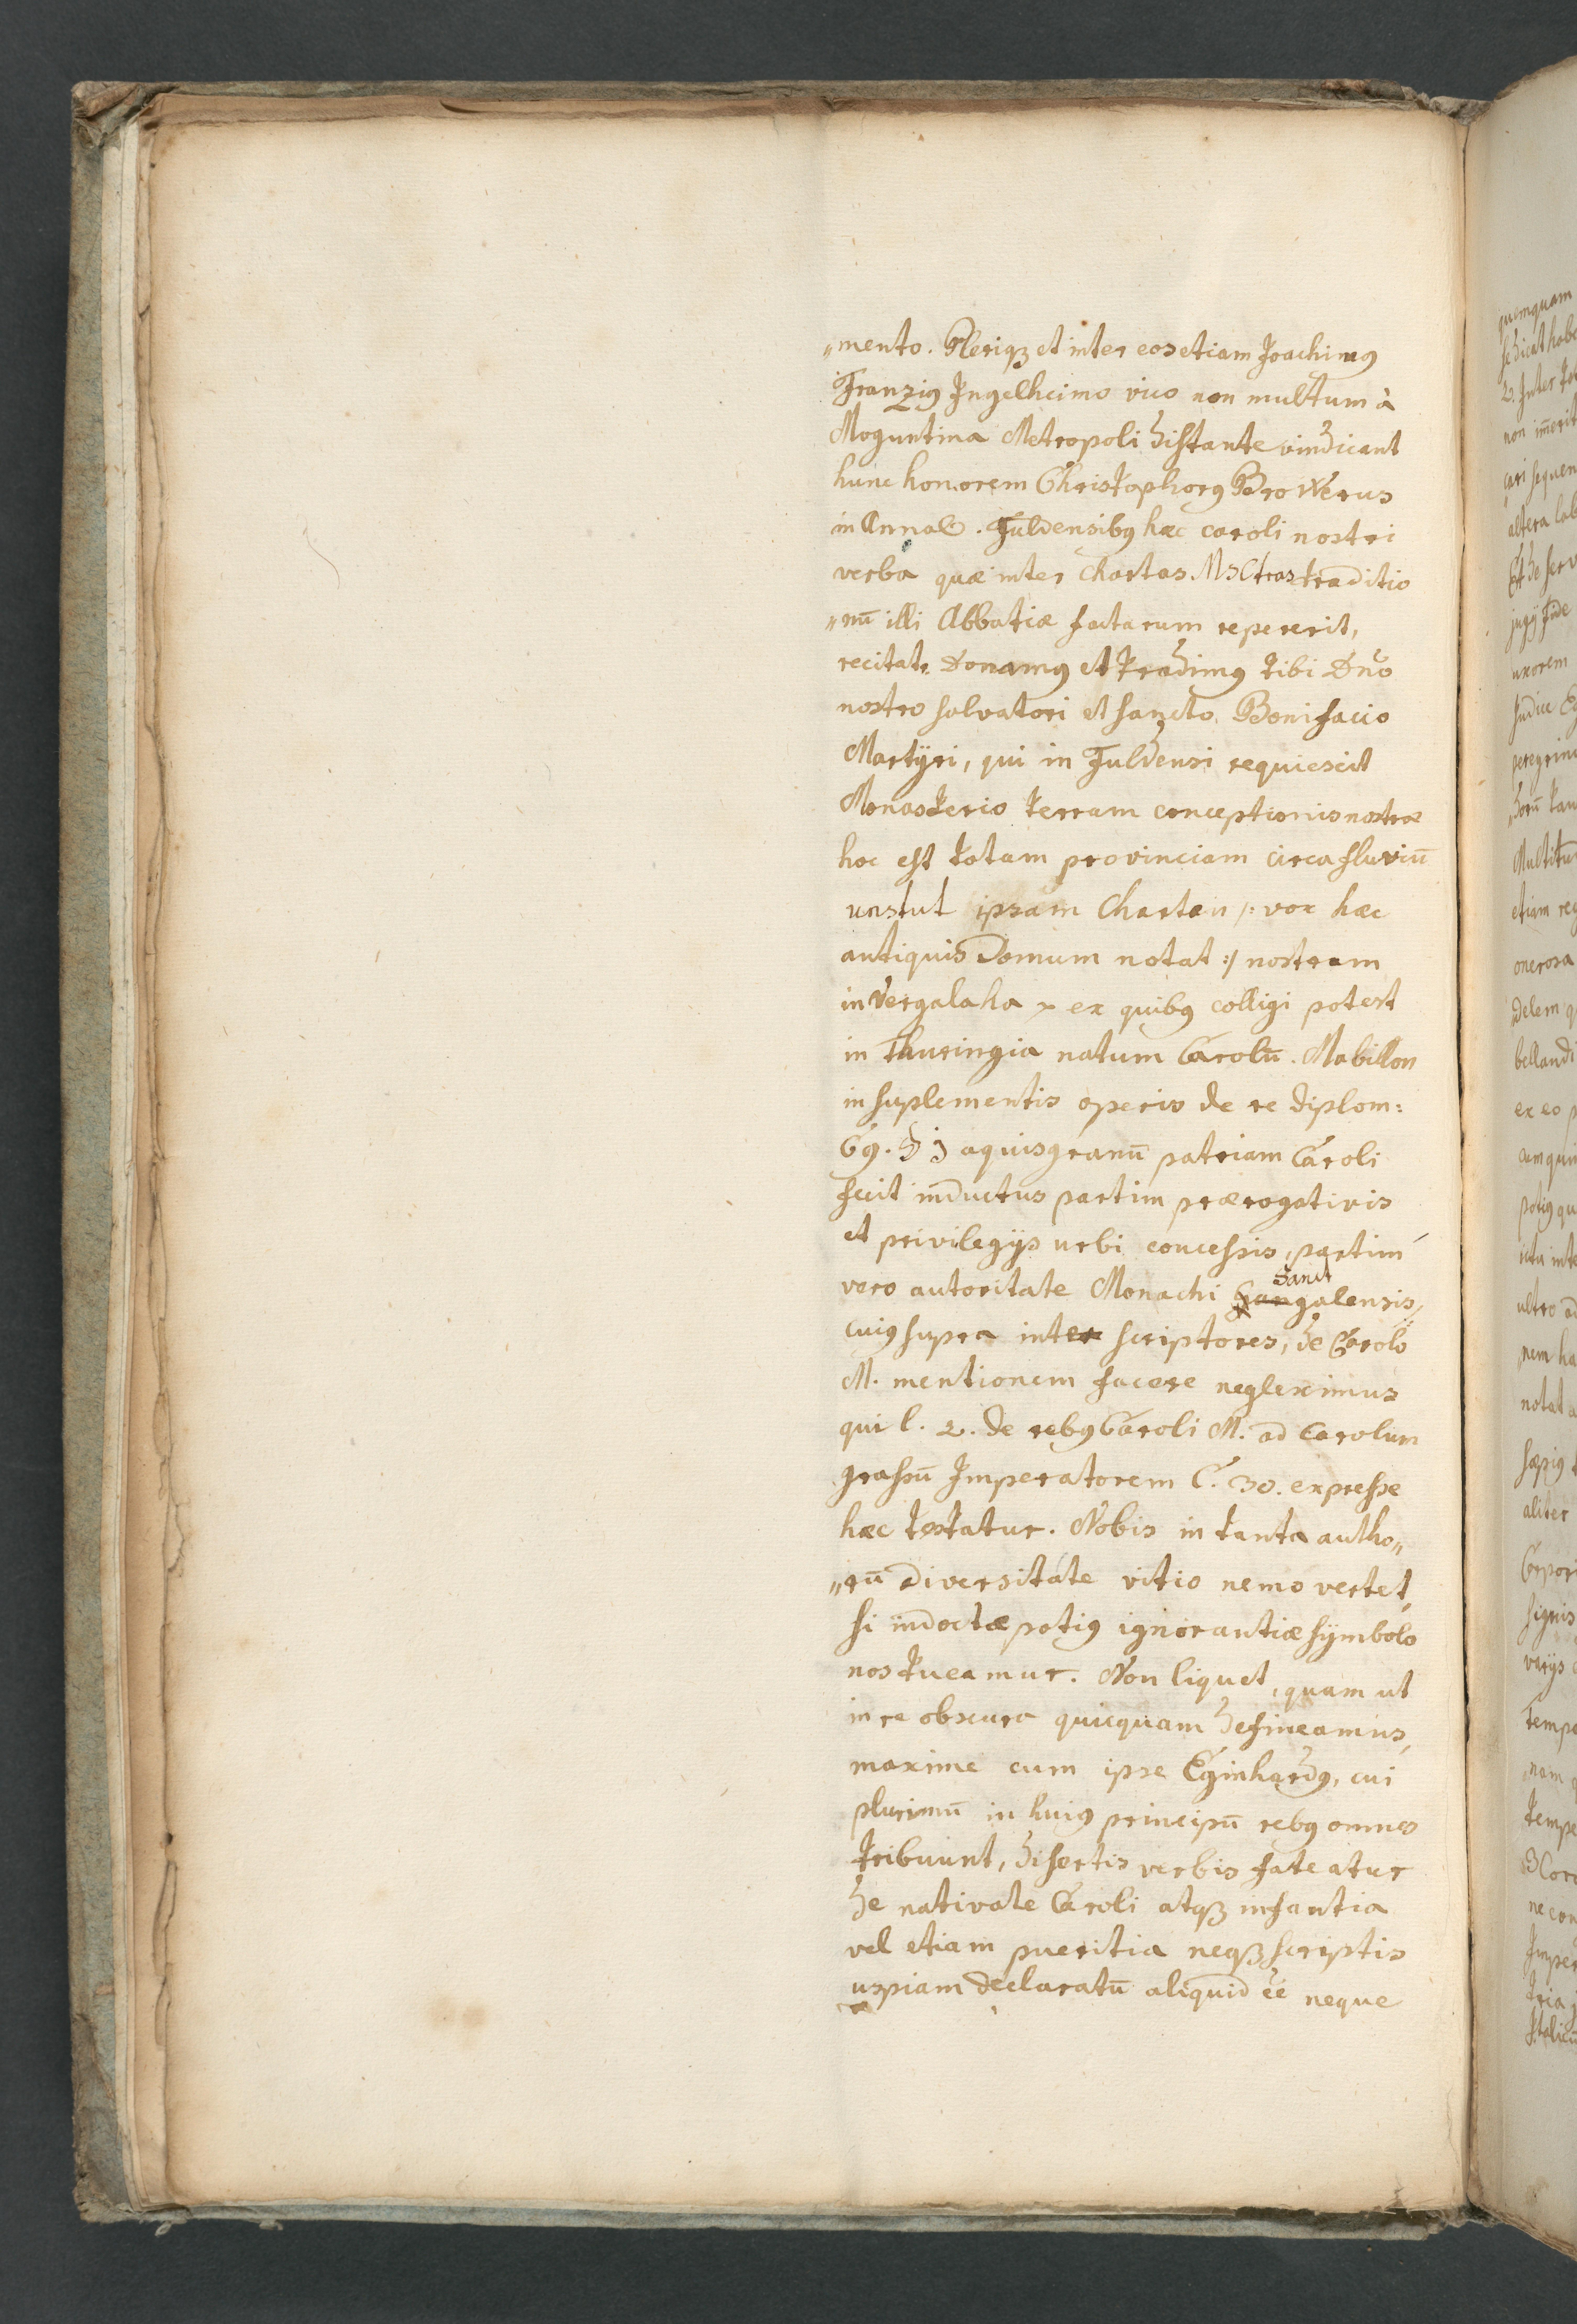 „mento. Pleriqꝫ et inter eos etiam Joachimꝰ
Franziꝰ Jngelheimo vico non multum à
Moguntina Metropoli distante vindicant
hunc honorem Christophorꝰ Browerus
in Annal. Fuldensibꝰ hæc caroli nostri
verba quæ inter chartas MSCtas traditio
„nū illi Abbatiæ factarum repererit,
recitat. Donamꝰ et tradimꝰ tibi Dn̄o
nostro salvatori et sancto Bonifacio
Martÿri, qui in Fuldensi requiescit
Monasterio terram conceptionis nostræ
hoc est totam provinciam circa fluviū
unstut ipsam Chartan /: vox hæc
antiquis Domum notat :/ nostram
in Vergalaha ex quibꝰ colligi potest
in Thuringia natum Carolū. Mabillon
in suplementis operis de re diplom:
C9. § j aquisgranū patriam Caroli
fecit inductus partim prærogativis
et privilegijs urbi concessis, partim
vero autoritate Monachi Sanct
galensis,
cuiꝰ supra inter scriptores, de Carolo
M. mentionem facere negleximus
qui l. 2. de rebꝰ Caroli M. ad Carolum
grassū Jmperatorem C. 30. expresse
hæc testatur. Nobis in tanta autho„
„rū diversitate vitio nemo vertet,
si indoctæ potiꝰ ignorantiæ sÿmbolo
nos tueamur. Non liquet, quam ut
in re obscura quicquam defineamus,
maxime cum ipse Eginhardꝰ, cui
plurimū in huiꝰ principū rebꝰ omnes
tribuunt, disertis verbis fateatur
de nativate Caroli atqꝫ infantia
vel etiam pueritia neqꝫ scriptis
uspiam declaratū aliquid ēē neque
quemquam
non im̄erit
sequen
altera
uxorem
Multitu
etiam
onerosa
bellandi
ex eo
ultro ad
notat
sæpiꝰ
aliter
signis
varijs